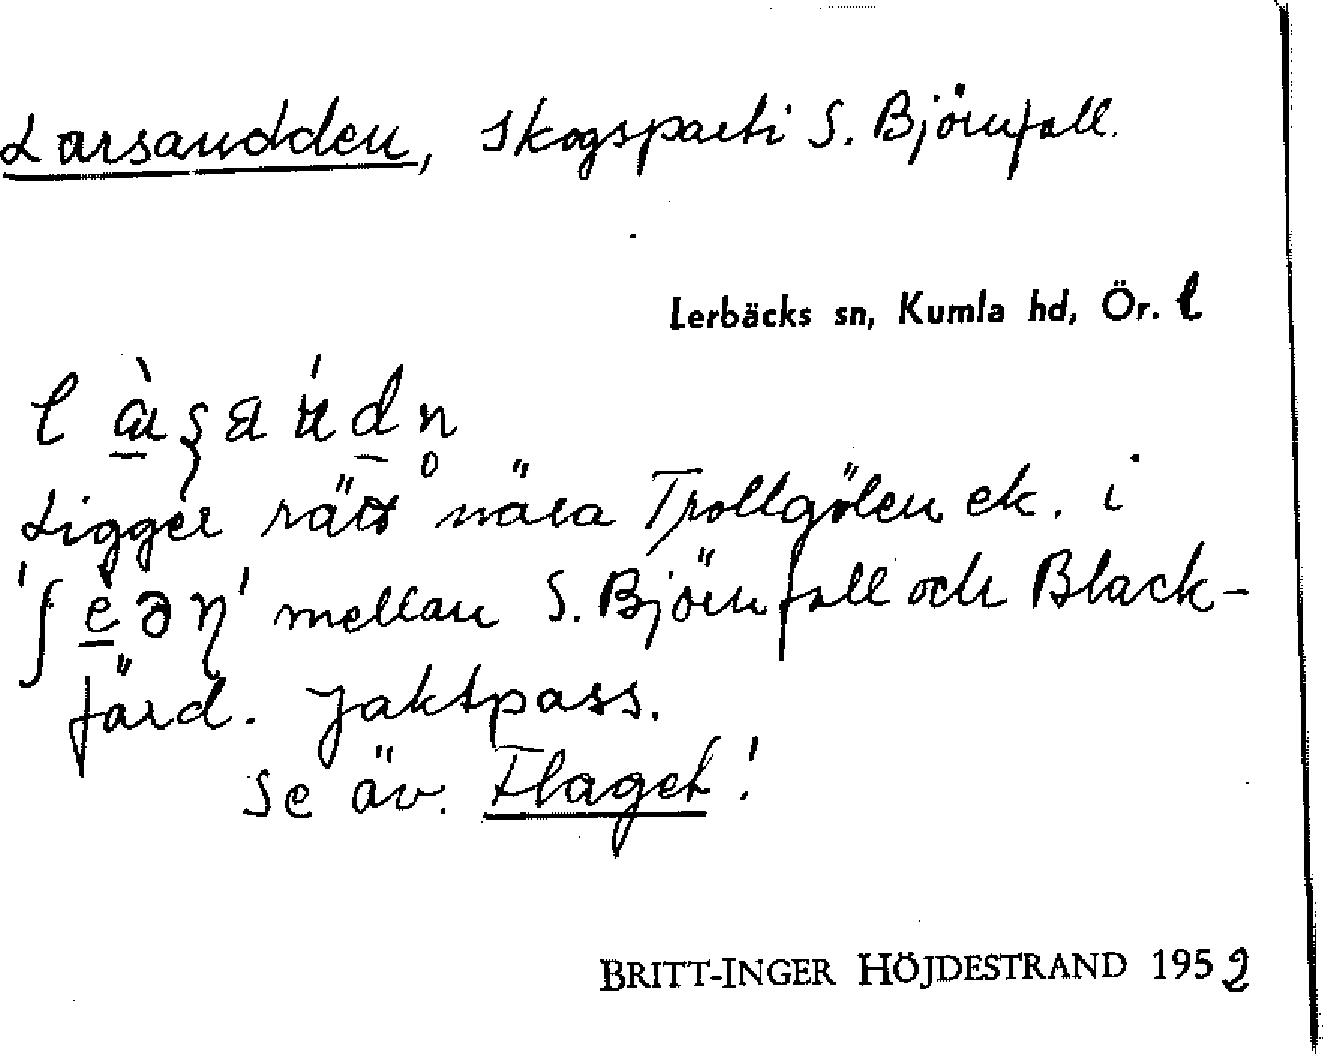 Larsaudden, Skogsparti S. Björnfall.
Lerbäcks sn, Kumla hd, Ör. l
Ligger rätt nära Trollgölen ek. i
mellan S. Björnfall och Black-
färd. Jaktpass.
Se äv. Flaget!
BRITT-INGER HÖJDESTRAND 1952